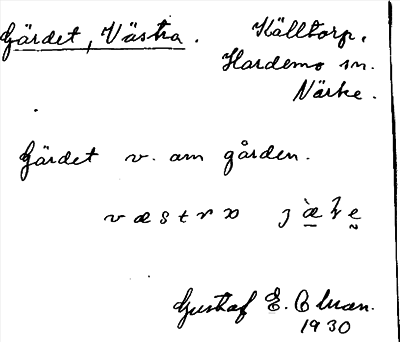 Gärdet, Västra. Källtorp,
Hardemo sn.
Närke.
Gärdet v. om gården.
Gustaf E.
1930